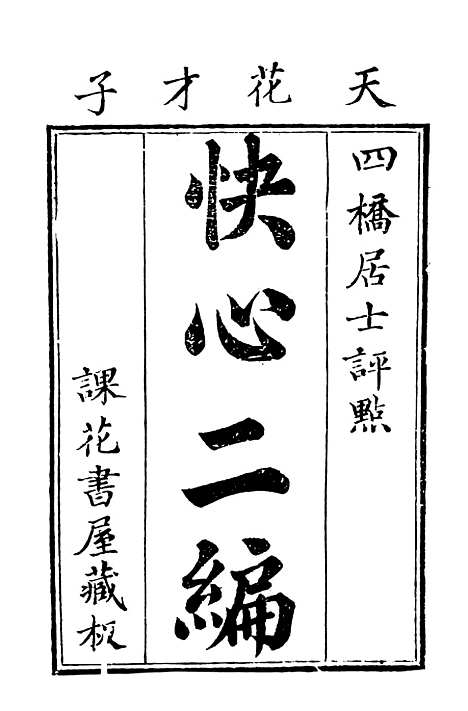 天花才子
四橋居士評點
快心二編
課花書屋藏板